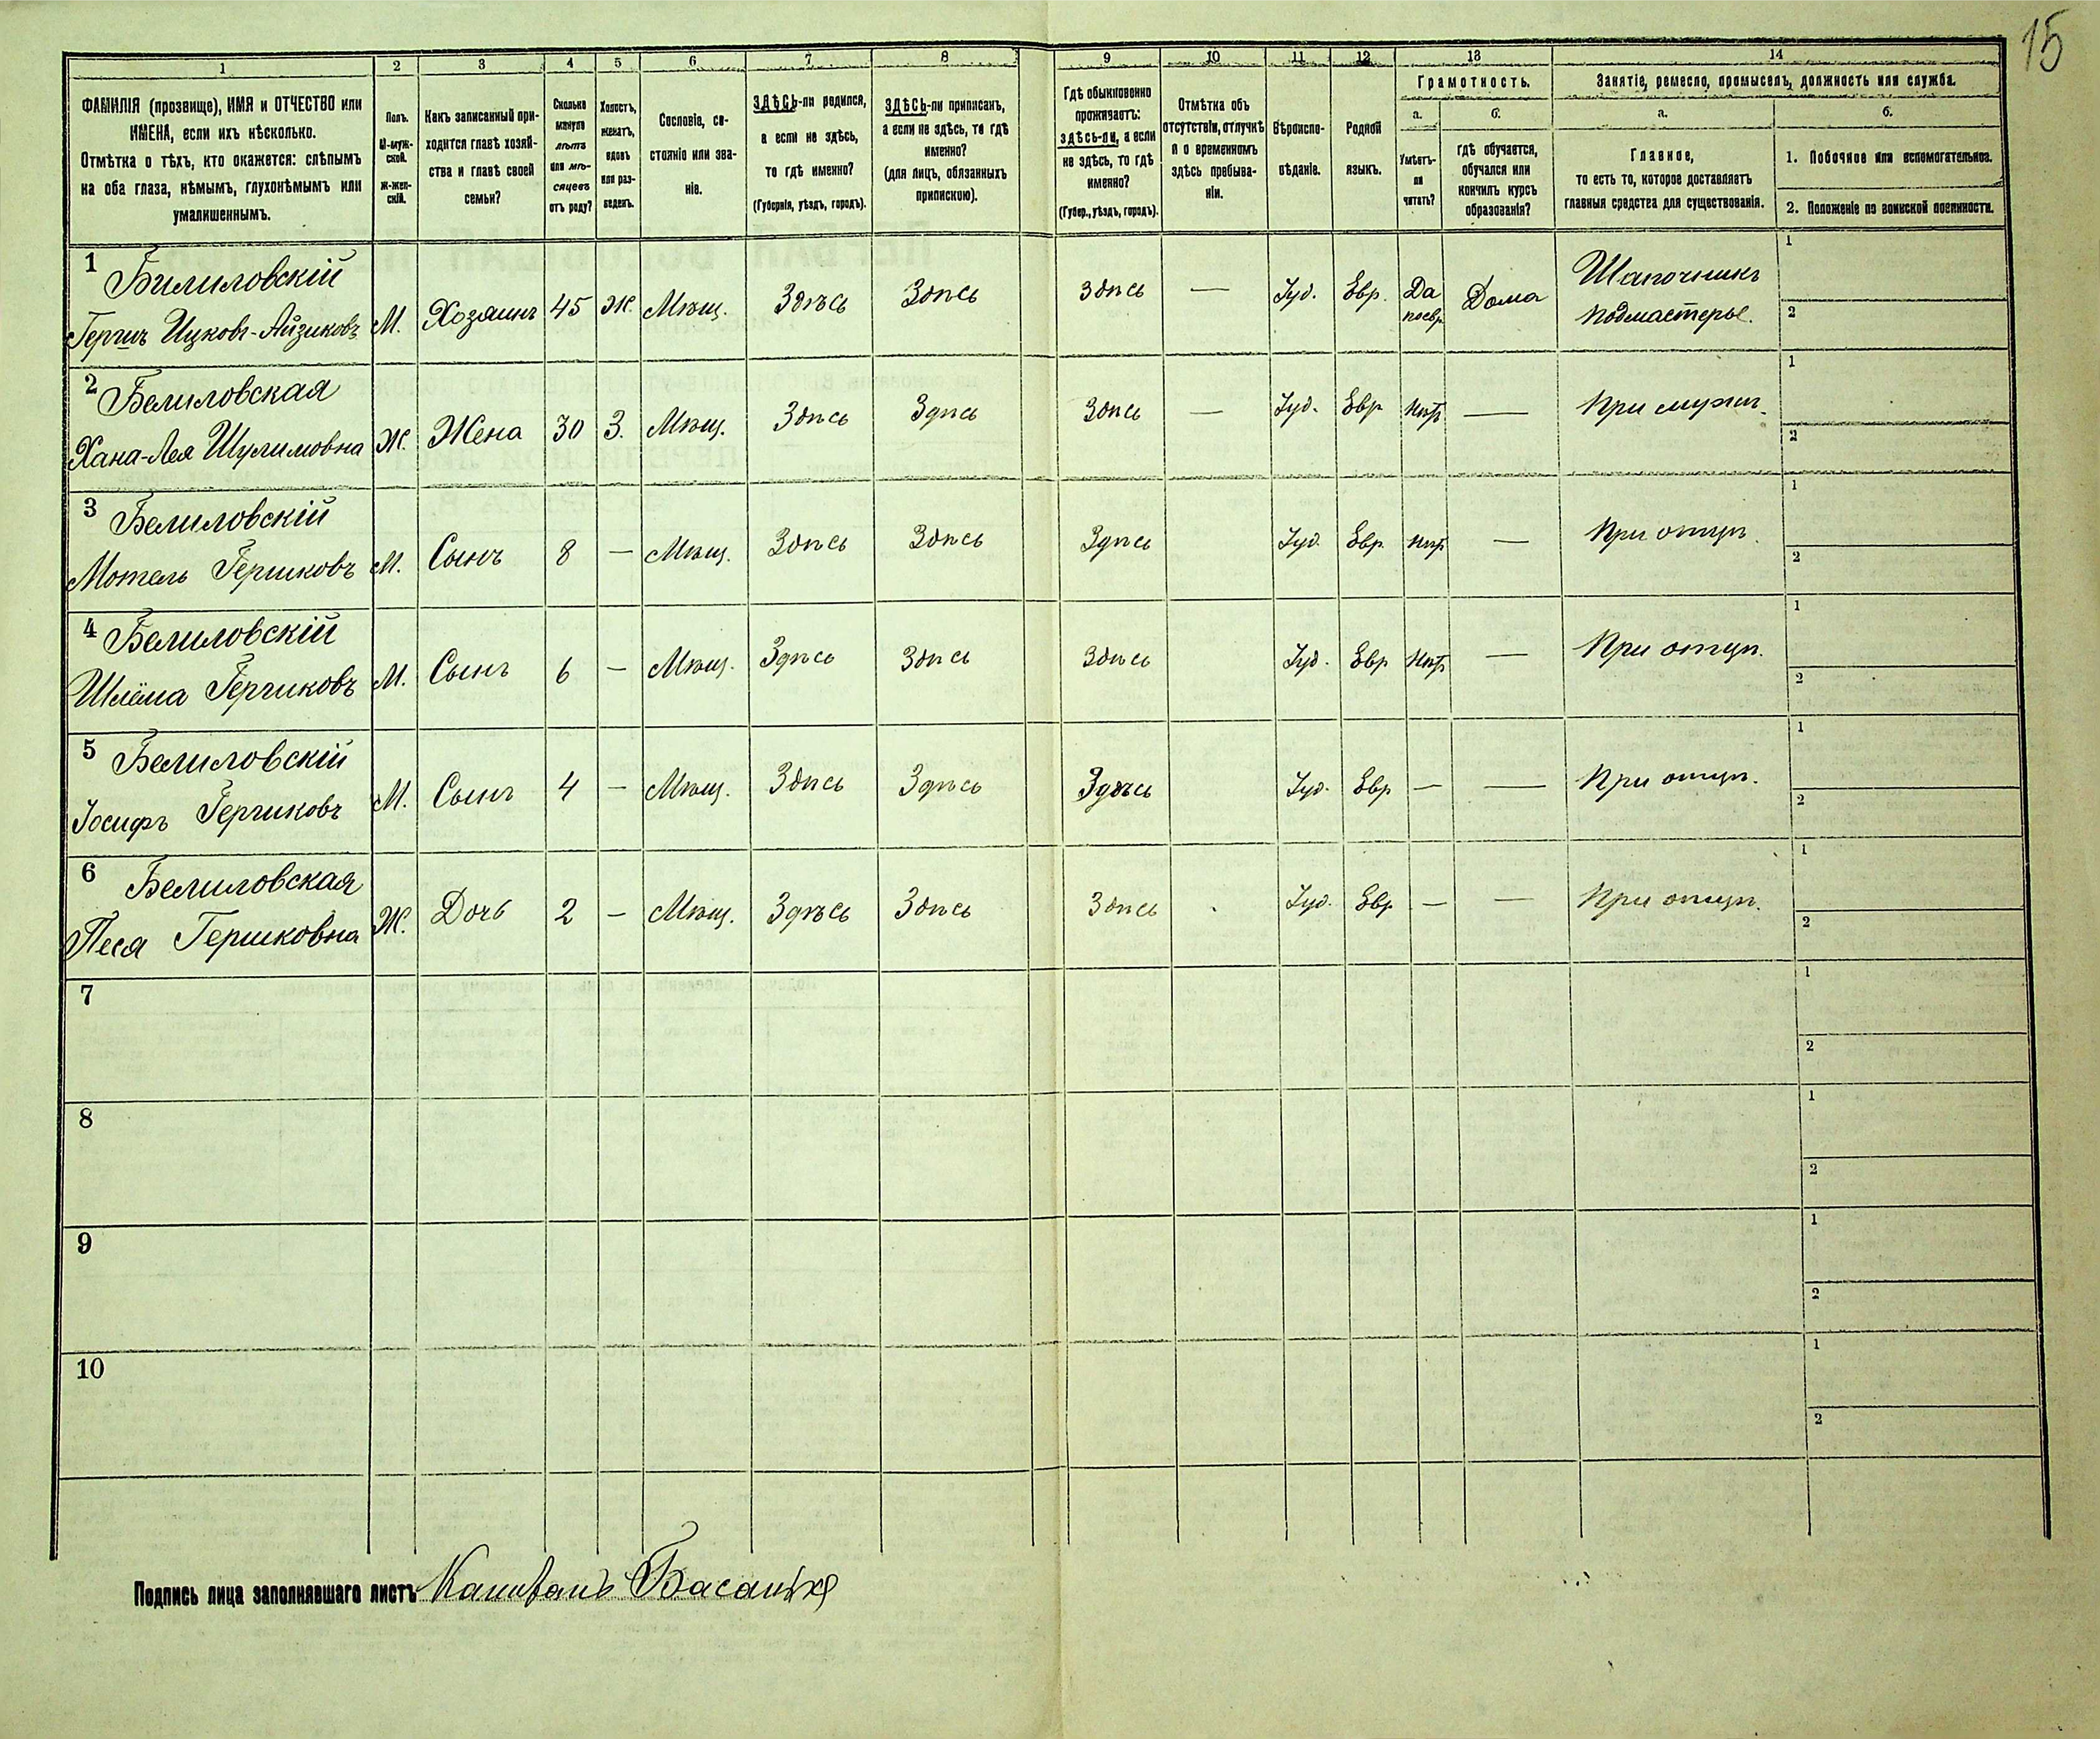 15
1 2 3 4 5 6 7 8 9 10 11 12 13 14
ФАМИЛІЯ (прозвище), ИМЯ и ОТЧЕСТВО или
ИМЕНА, если ихъ нѣсколько.
Отмѣтка о тѣхъ, кто окажется: слѣпымъ
на оба глаза, нѣмымъ, глухонѣмымъ или
умалишеннымъ.
Полъ.
М-муж-
ской.
Ж-жен-
скій.
Какъ записанный при-
ходится главѣ хозяй-
ства и главѣ своей
семьи?
Сколько
минуло
лѣтъ
или мѣ-
сяцевъ
отъ роду?
Холостъ,
женатъ,
вдовъ
или раз-
веденъ.
Сословіе, со-
стояніе или зва-
ніе.
ЗДѢСЬ-ли родился,
а если не здѣсь,
то гдѣ именно?
(Губернія, уѣздъ, городъ).
ЗДѢСЬ-ли приписанъ,
а если не здѣсь, то гдѣ
именно?
(для лицъ, обязанныхъ
припискою).
Гдѣ обыкновенно
проживаетъ:
здѣсь-ли, а если
не здѣсь, то гдѣ
именно?
(Губер., уѣздъ, городъ).
Отмѣтка объ
отсутствіи, отлучкѣ
и о временномъ
здѣсь пребыва-
ніи.
Вѣроиспо-
вѣданіе.
Родной
языкъ.
Грамотность.
а.
Умѣетъ-
ли
читать?
б.
гдѣ обучается,
обучался или
кончилъ курсъ
образованія?
Занятіе, ремесло, промыселъ, должность или служба.
а.
Главное,
то есть то, которое доставляетъ
главныя средства для существованія.
б.
1. Побочное или вспомогательное.
2. Положеніе по воинской повинности.
1 Билиловскій
Гершъ Ицковъ-Айзиковъ М. Хозяинъ 45 Ж. Мѣщ. Здѣсь Здѣсь Здѣсь — Іуд. Евр. Да Дома Шапочникъ
подмастерье.
1
2
2 Белиловская
Хана-Лея Шулимовна Ж. Жена 30 З. Мѣщ. Здѣсь Здѣсь Здѣсь — Іуд. Евр Нѣтъ — При мужѣ.
1
2
3 Белиловскій
Мотель Гершковъ М. Сынъ 8 — Мѣщ. Здѣсь Здѣсь Здѣсь Іуд. Евр. Нѣтъ — При отцѣ.
1
2
4 Белиловскій
Шлёма Гершковъ М. Сынъ 6 — Мѣщ. Здѣсь Здѣсь Здѣсь Іуд. Евр Нѣтъ — При отцѣ.
1
2
5 Белиловскій
Іосифъ Гершковъ М. Сынъ 4 — Мѣщ. Здѣсь Здѣсь Здѣсь Іуд. Евр — — При отцѣ.
1
2
6 Белиловская
Песя Гершковна Ж. Дочь 2 — Мѣщ. Здѣсь Здѣсь Здѣсь Іуд. Евр — — При отцѣ.
1
2
7
1
2
8
1
2
9
1
2
10
1
2
Подпись лица заполнявшаго листъ